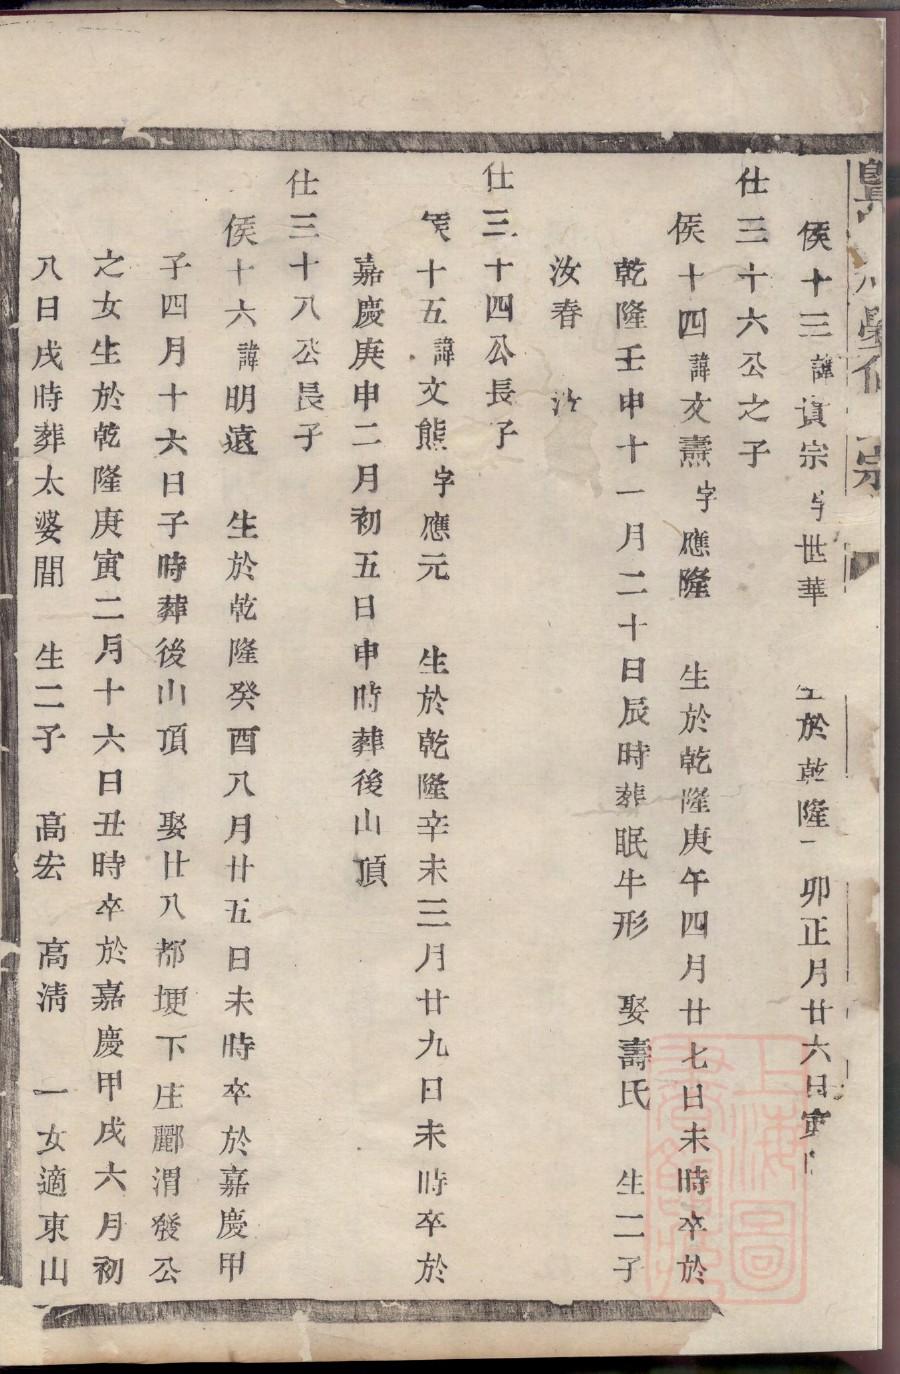 侯十三諱資宗字世華 生於乾隆 卯正月廿六日寅
仕三十六公之子
侯十四諱文燾字應隆 生於乾隆庚午四月廿七日未時卒於
乾隆壬申十一月二十日辰時葬眠牛形 娶壽氏 生二子
汝春 汝
仕三十四公長子
侯十五諱文熊字應元 生於乾隆辛未三月廿九日未時卒於
嘉慶庚申二月初五日申時葬後山頂
仕三十八公長子
侯十六諱明遠 生於乾隆癸酉八月廿五日未時卒於嘉慶甲
子四月十六日子時葬後山頂 娶廿八都埂下庄酈渭發公
之女生於乾隆庚寅二月十六日丑時卒於嘉慶甲戌六月初
八日戌時葬太婆間 生二子 高宏 高淸 一女適東山
上海圖